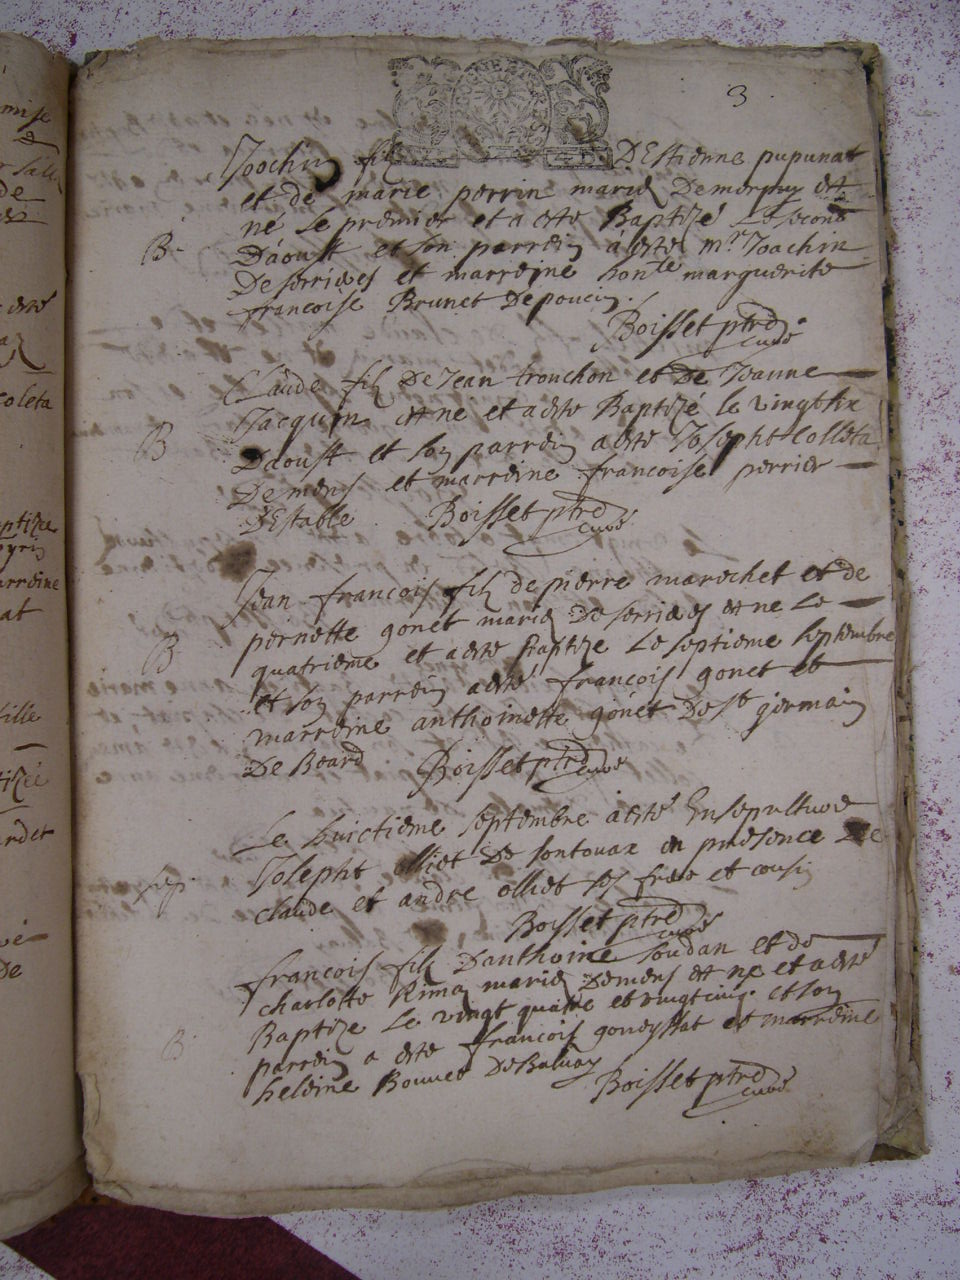 3
Joachin filz D'Estienne pupunat
et de marie perrin mariez Demerpuy est
né Le premier et a esté Baptizé Le second
B Daoust et son parrein a esté Mr Joachin
De serrieres et marreine honle marguerite
francoise Brunet De poucin.
Boisset ptre
curé
Claude filz De Jean tronchon et De Joanne
Jacquin est ne et a esté Baptizé le vingt six
B Daoust et son parrein a esté Joseph Colleta
De mens et marreine francoise perrier
D'Estable Boisset ptre
curé
Jean francois filz de pierre marechet et de
pernette gonet mariez De serrieres est ne Le
B quatrieme et a esté Baptize Le septieme septembre
et son parrein a esté francois gonet et
marreine anthoinette gonet De st germain
De Beard Boisset ptre
curé
Le huictieme septembre a esté Ensepulturé
sep. Joseph olliet De fontouax en presence De
claude et andre olliet ses frere et cousin
Boisset ptre
curé
francois filz D'anthoine soudan et de
charlotte mariez De mens est ne et a esté
Baptize Le vingt quatre et vingtcinq. et son
B parrein a esté francois goneyssat et marreine
heleine Bouvet De
Boisset ptre
curé
mise
De
a esté
coleta
arreine
at
fille
De